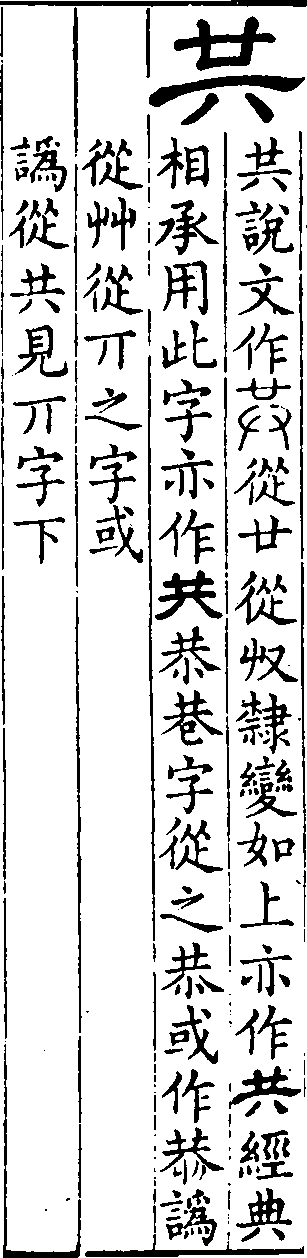 共
共說文作𠔏從廿從𠬞隸變如上亦作共經典
相承用此字亦作共恭巷字從之恭或作㳟譌
從艸從丌之字或
譌從共見丌字下